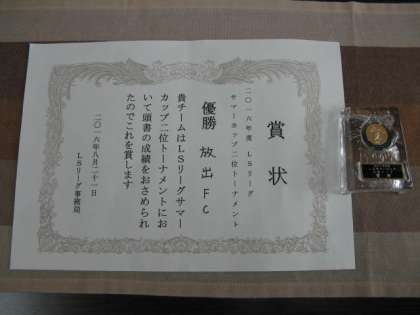 賞状
二〇一六年度 LSリーグ
サマーカップ二位トーナメント
優勝 放出FC
貴チームはLSリーグサマー
カップ二位トーナメントにお
いて頭書の成績をおさめられ
たのでこれを賞します
二〇一六年八月二十一日
LSリーグ事務局